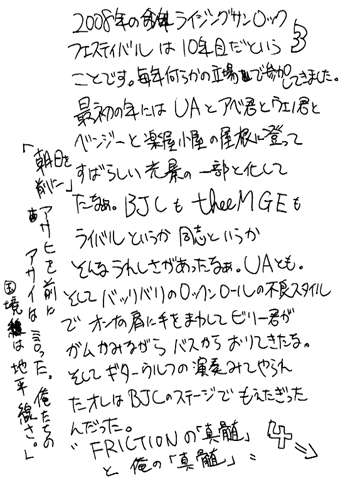 2008年のライジングサンロック
フェスティバルは10年目だという
ことです。毎年何らかの立場で参加してきました。
最初の年にはUAとアベ君とウエノ君と
ベンジーと楽屋小屋の屋根に登って
すばらしい光景の一部と化して
たなぁ。BJCもtheeMGEも
ライバルというか同志というか
そんなうれしさがあったなぁ。UAとも。
そしてバッリバリのロックンロールの不良スタイル
でオンナの肩に手をまわしてビリー君が
ガムかみながらバスからおりてきたな。
そしてギターウルフの演奏みてやられ
たオレはBJCのステージでもえたぎった
んだった。
"FRICTIONの「真髄」
と俺の「真髄」"
「朝日を前に」
アサヒを前に
アサイは言った。俺たちの
国境は地平線さ。」
3
4